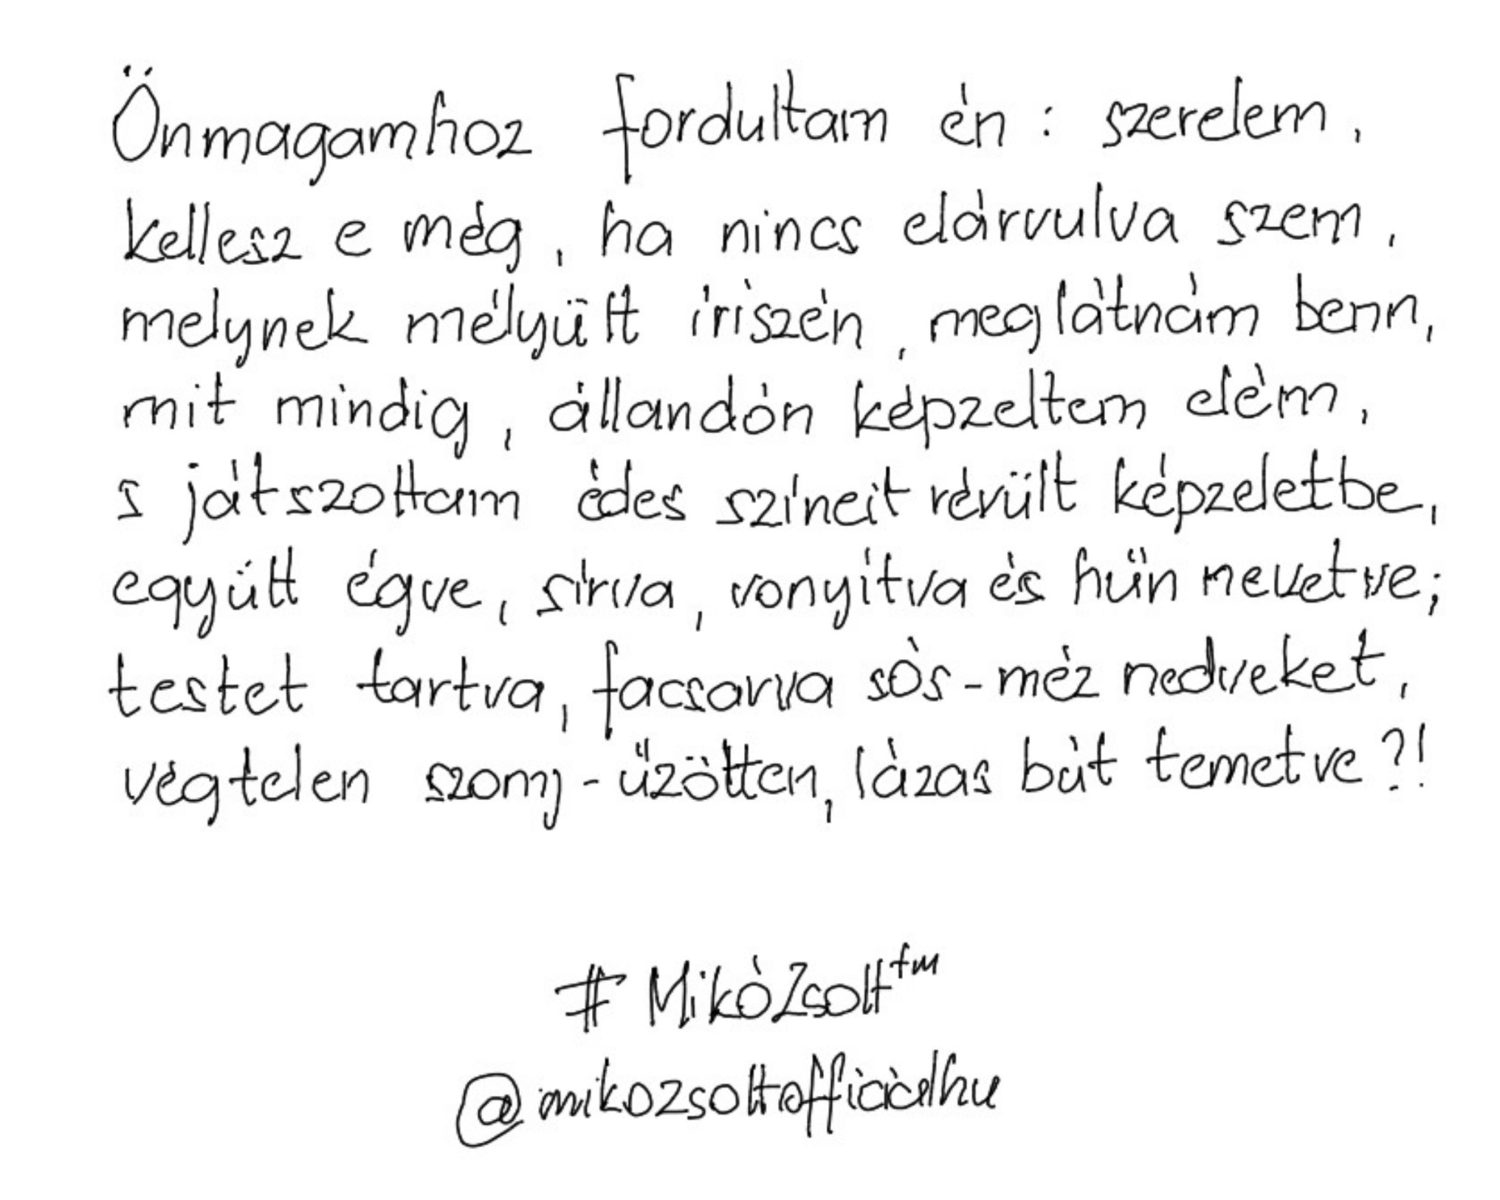 Önmagamhoz fordultam én : szerelem,
kellesz e még, ha nincs elárvulva szem,
melynek mélyült íriszén, meglátnám benn,
mit mindig, állandón képzeltem elém,
s játszottam édes színeit révült képzeletbe,
együtt égve, sírva, vonyítva és hün nevetve;
testet tartva, facsarva sós-méz nedveket,
végtelen szomj-űzötten, lázas bút temetve?!
# MikóZsolt tm
@mikozsoltofficialhu